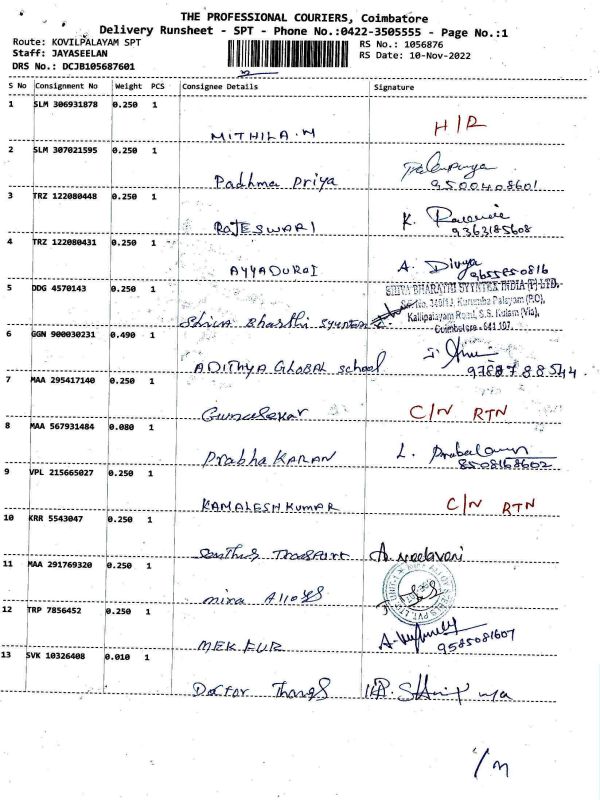 THE PROFESSIONAL COURIERS, Coimbatore
Delivery Runsheet - SPT - Phone No.:0422-3505555 - Page No.:1
Route: KOVILPALAYAM SPT
Staff: JAYASEELAN
DRS No.: DCJB105687601
RS No.: 1056876
RS Date: 10-Nov-2022
S No Consignment No Weight PCS Consignee Details Signature
1 SLM 306931878 0.250 1
MITHILA.M H/R
2 SLM 307021595 0.250 1
Padhma Priya
9500408601
3 TRZ 122080448 0.250 1
RAJESWARI K.
9363185608
4 TRZ 122080431 0.250 1
AYYADURAI A. Divya
9655850816
5 DDG 4570143 0.250 1
SHIVA BHARATHI SYNTEX INDIA (P) LTD.
Kurumba Palayam (P.O),
Kallipalayam Road, S.S. Kulam (Via),
Coimbatore - 641 107.
Shiva Bharthi
6 GGN 900030231 0.490 1
ADITHYA GLOBAL School
7 MAA 295417140 0.250 1
Gunasekar C/N RTN
8 MAA 567931484 0.080 1
Prabha KARAN L.
8508168602
9 VPL 215665027 0.250 1
KAMALESH KUMAR C/N RTN
10 KRR 5543047 0.250 1
11 MAA 291769320 0.250 1
Alloys
12 TRP 7856452 0.250 1
MEK FUR
9585081607
13 SVK 10326408 0.010 1
Doctor Thangs